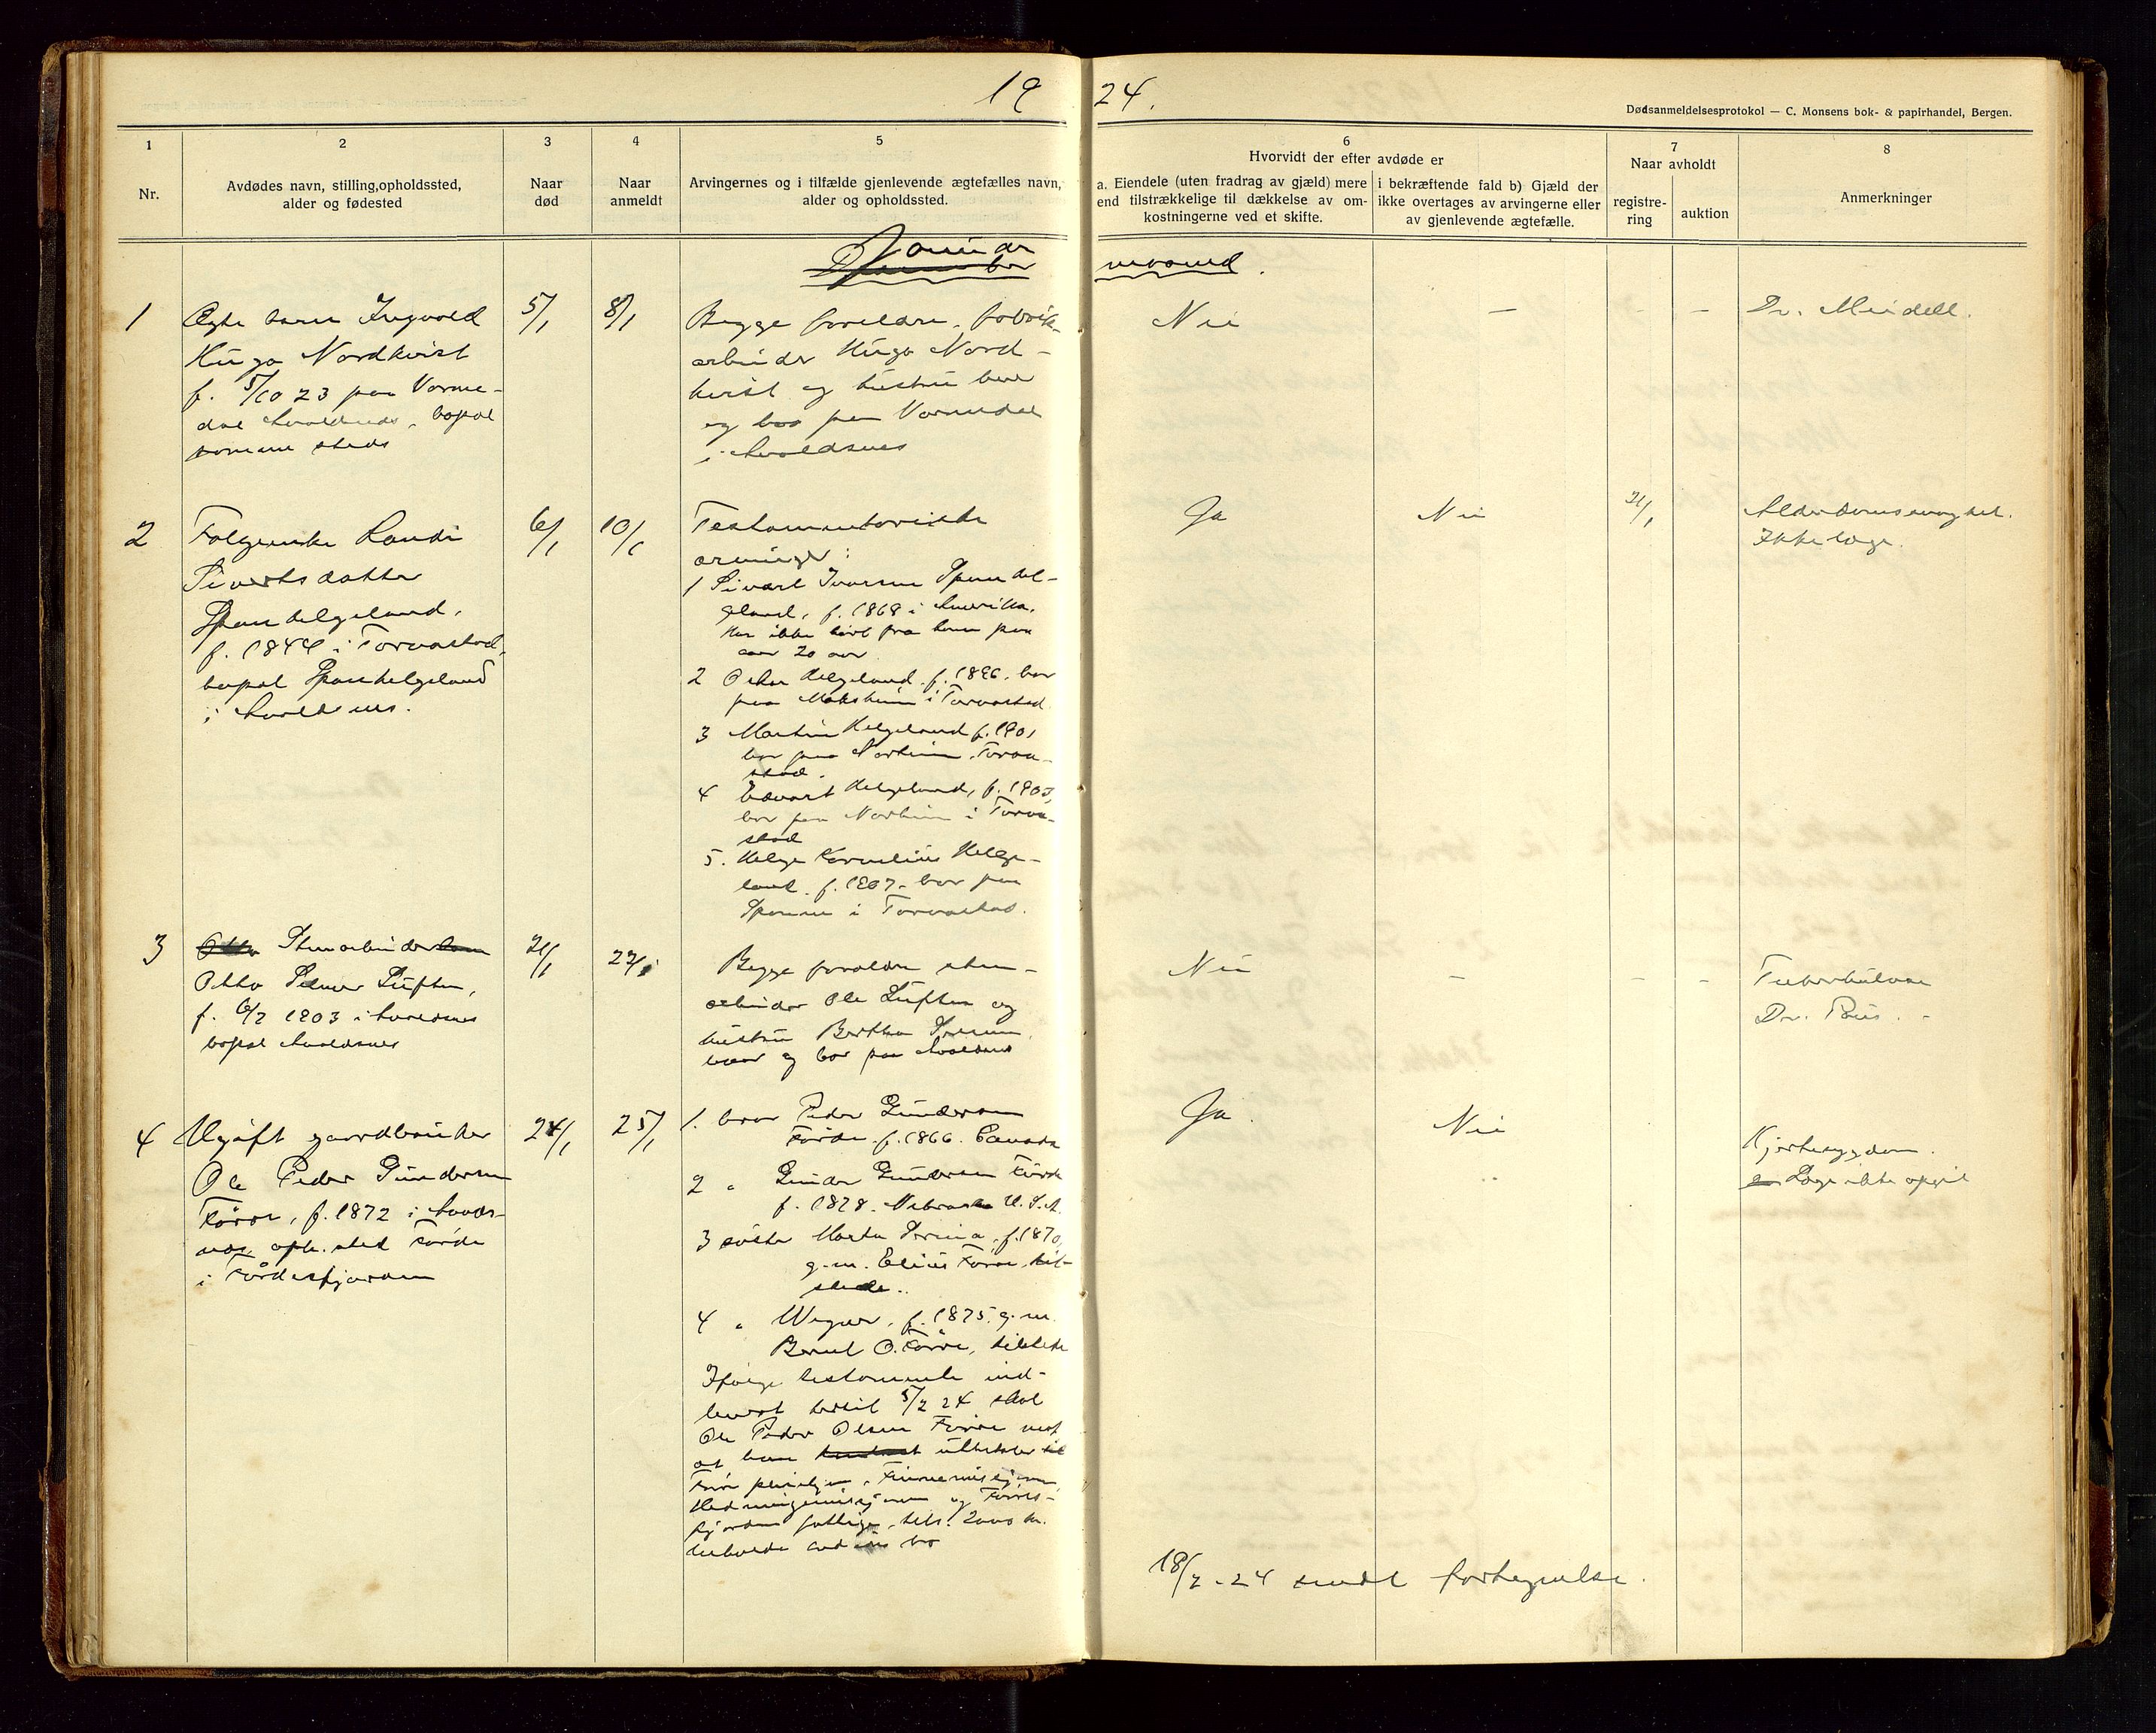 19 24.
Dødsanmeldelsesprotokol — C. Monsens bok- & papirhandel, Bergen.
1
Nr.
2
Avdødes navn, stilling, opholdssted,
alder og fødested
3
Naar
død
4
Naar
anmeldt
5
Arvingernes og i tilfælde gjenlevende ægtefælles navn,
alder og opholdssted.
6
Hvorvidt der efter avdøde er
a. Eiendele (uten fradrag av gjæld) mere
end tilstrækkelige til dækkelse av om-
kostningerne ved et skifte.
i bekræftende fald b) Gjæld der
ikke overtages av arvingerne eller
av gjenlevende ægtefælle.
7
Naar avholdt
registre-
ring
auktion
8
Anmerkninger
Januar maaned.
1
Ægte barn Ingvald
Hugo Nordkvist
f. 5/10 23 paa Vorme-
dal Avaldsnes, bopæl
samme steds
5/1
8/1
Begge forældre, fabrik-
arbeider Hugo Nord-
kvist og hustru
og bor paa Vormedal
i Avaldsnes
Nei
—
-
-
Dr. Meidell.
2
Folgeenke Randi
Sivertsdatter
Spandelgeland,
f. 1844 i Torvastad,
bopæl Spanhelgeland
i Avaldsnes.
6/1
10/1
Testamentariske
arvinger:
1 Sivert Ivarsen Spanhel-
geland, f. 1868 i Amerika.
Har ikke hørt fra ham paa
20 aar
2 Helgeland f. 1896. bor
paa i Torvastad
3 Martin Helgeland f. 1901
bor paa Norheim, Torva-
stad.
4 Edvart Helgeland, f. 1905,
bor paa Norheim i Torva-
stad
5. Helge Kornelius Helge-
land f. 1907. bor paa
Spanne i Torvastad.
Ja
Nei
21/1
Alderdomssvaghet.
Ikke læge.
3
Stenarbeider
Otto Selmer Tuften,
f. 6/2 1903 i Avaldsnes
bopæl Avaldsnes
21/1
22/1
Begge forældre sten-
arbeider Ole Tuften og
hustru Bertha
og bor paa Avaldsnes
Nei
-
-
-
Tuberkulose
Dr.
4
Ugift gaardbruker
Ole Peder Gundersen
Førre, f. 1872 i Avalds-
nes, oph. sted Førde
i Førdesfjorden
24/1
25/1
1. bror Peder Gundersen
Førde f. 1866. Canada
2 " Gunder Gundersen Førde
f. 1878. Nebraska U.S.A.
3 søster Marta Serina, f. 1870,
g.m. Elius Førre, tilstede
4 " f. 1875, g.m.
Bernt O. Førre, tilstede
Ifølge testamente ind-
levert hertil 5/2 24 skal
Ole Peder Olsen Førre mot
at han utbetaler til
Finnemisjonen,
Hedningemisjonen og Førres-
fjorden fattige, tils. 2000 kr.
beholde
Ja.
Nei
Hjertesygdom.
Læge ikke opgit
18/2 -24 sendt fortegnelse.